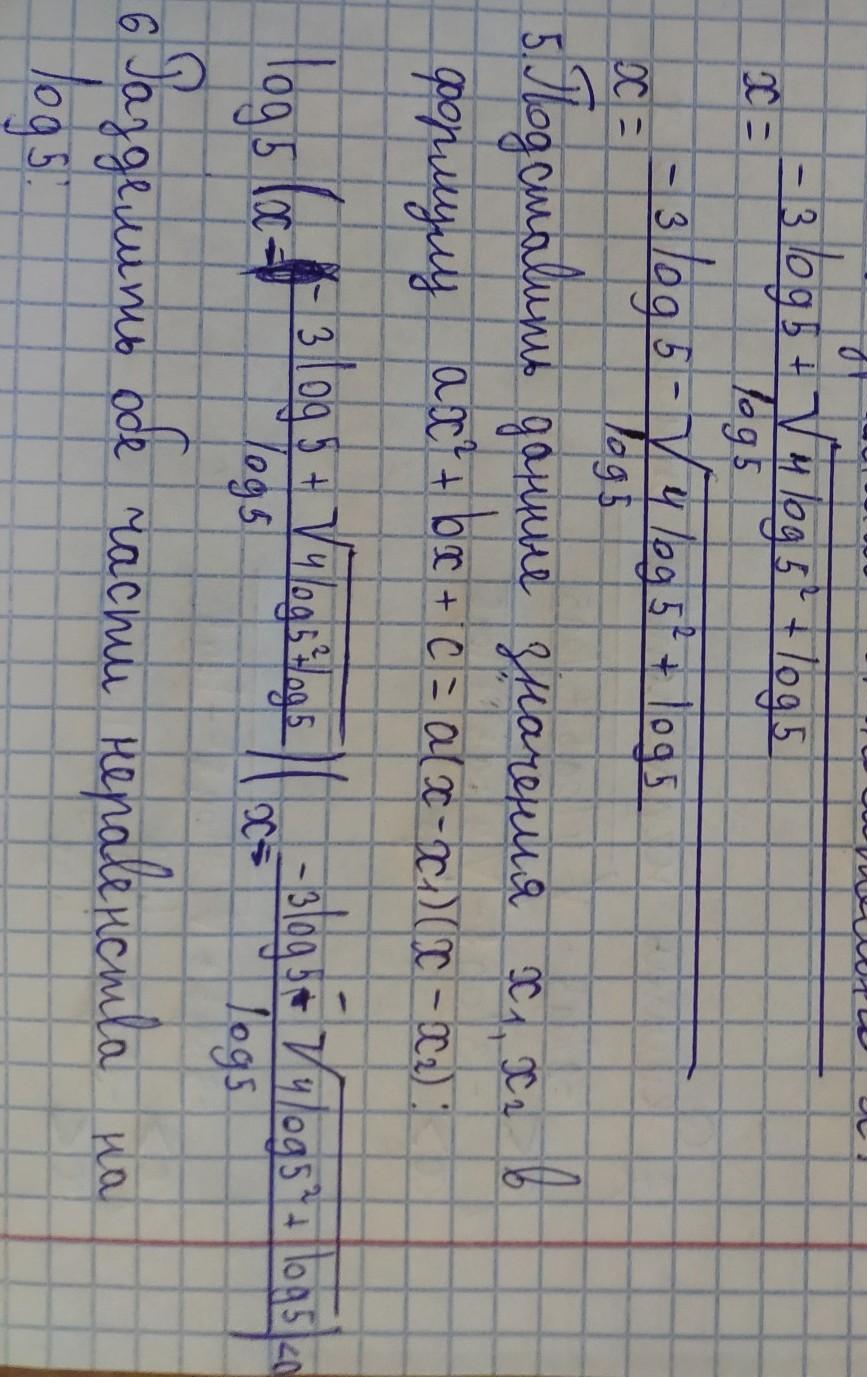 x = -3 log 5 + √4 log 5² + log 5
log 5
x = -3 log 5 - √4 log 5² + log 5
log 5
5. Подставить данные значения x₁, x₂ в
формулу ax² + bx + c = a(x - x₁)(x - x₂):
log 5 (x = -3 log 5 + √4 log 5² + log 5)(x = -3 log 5 - √4 log 5² + log 5) <0
log 5 log 5
6 Разделить обе части неравенства на
log 5: